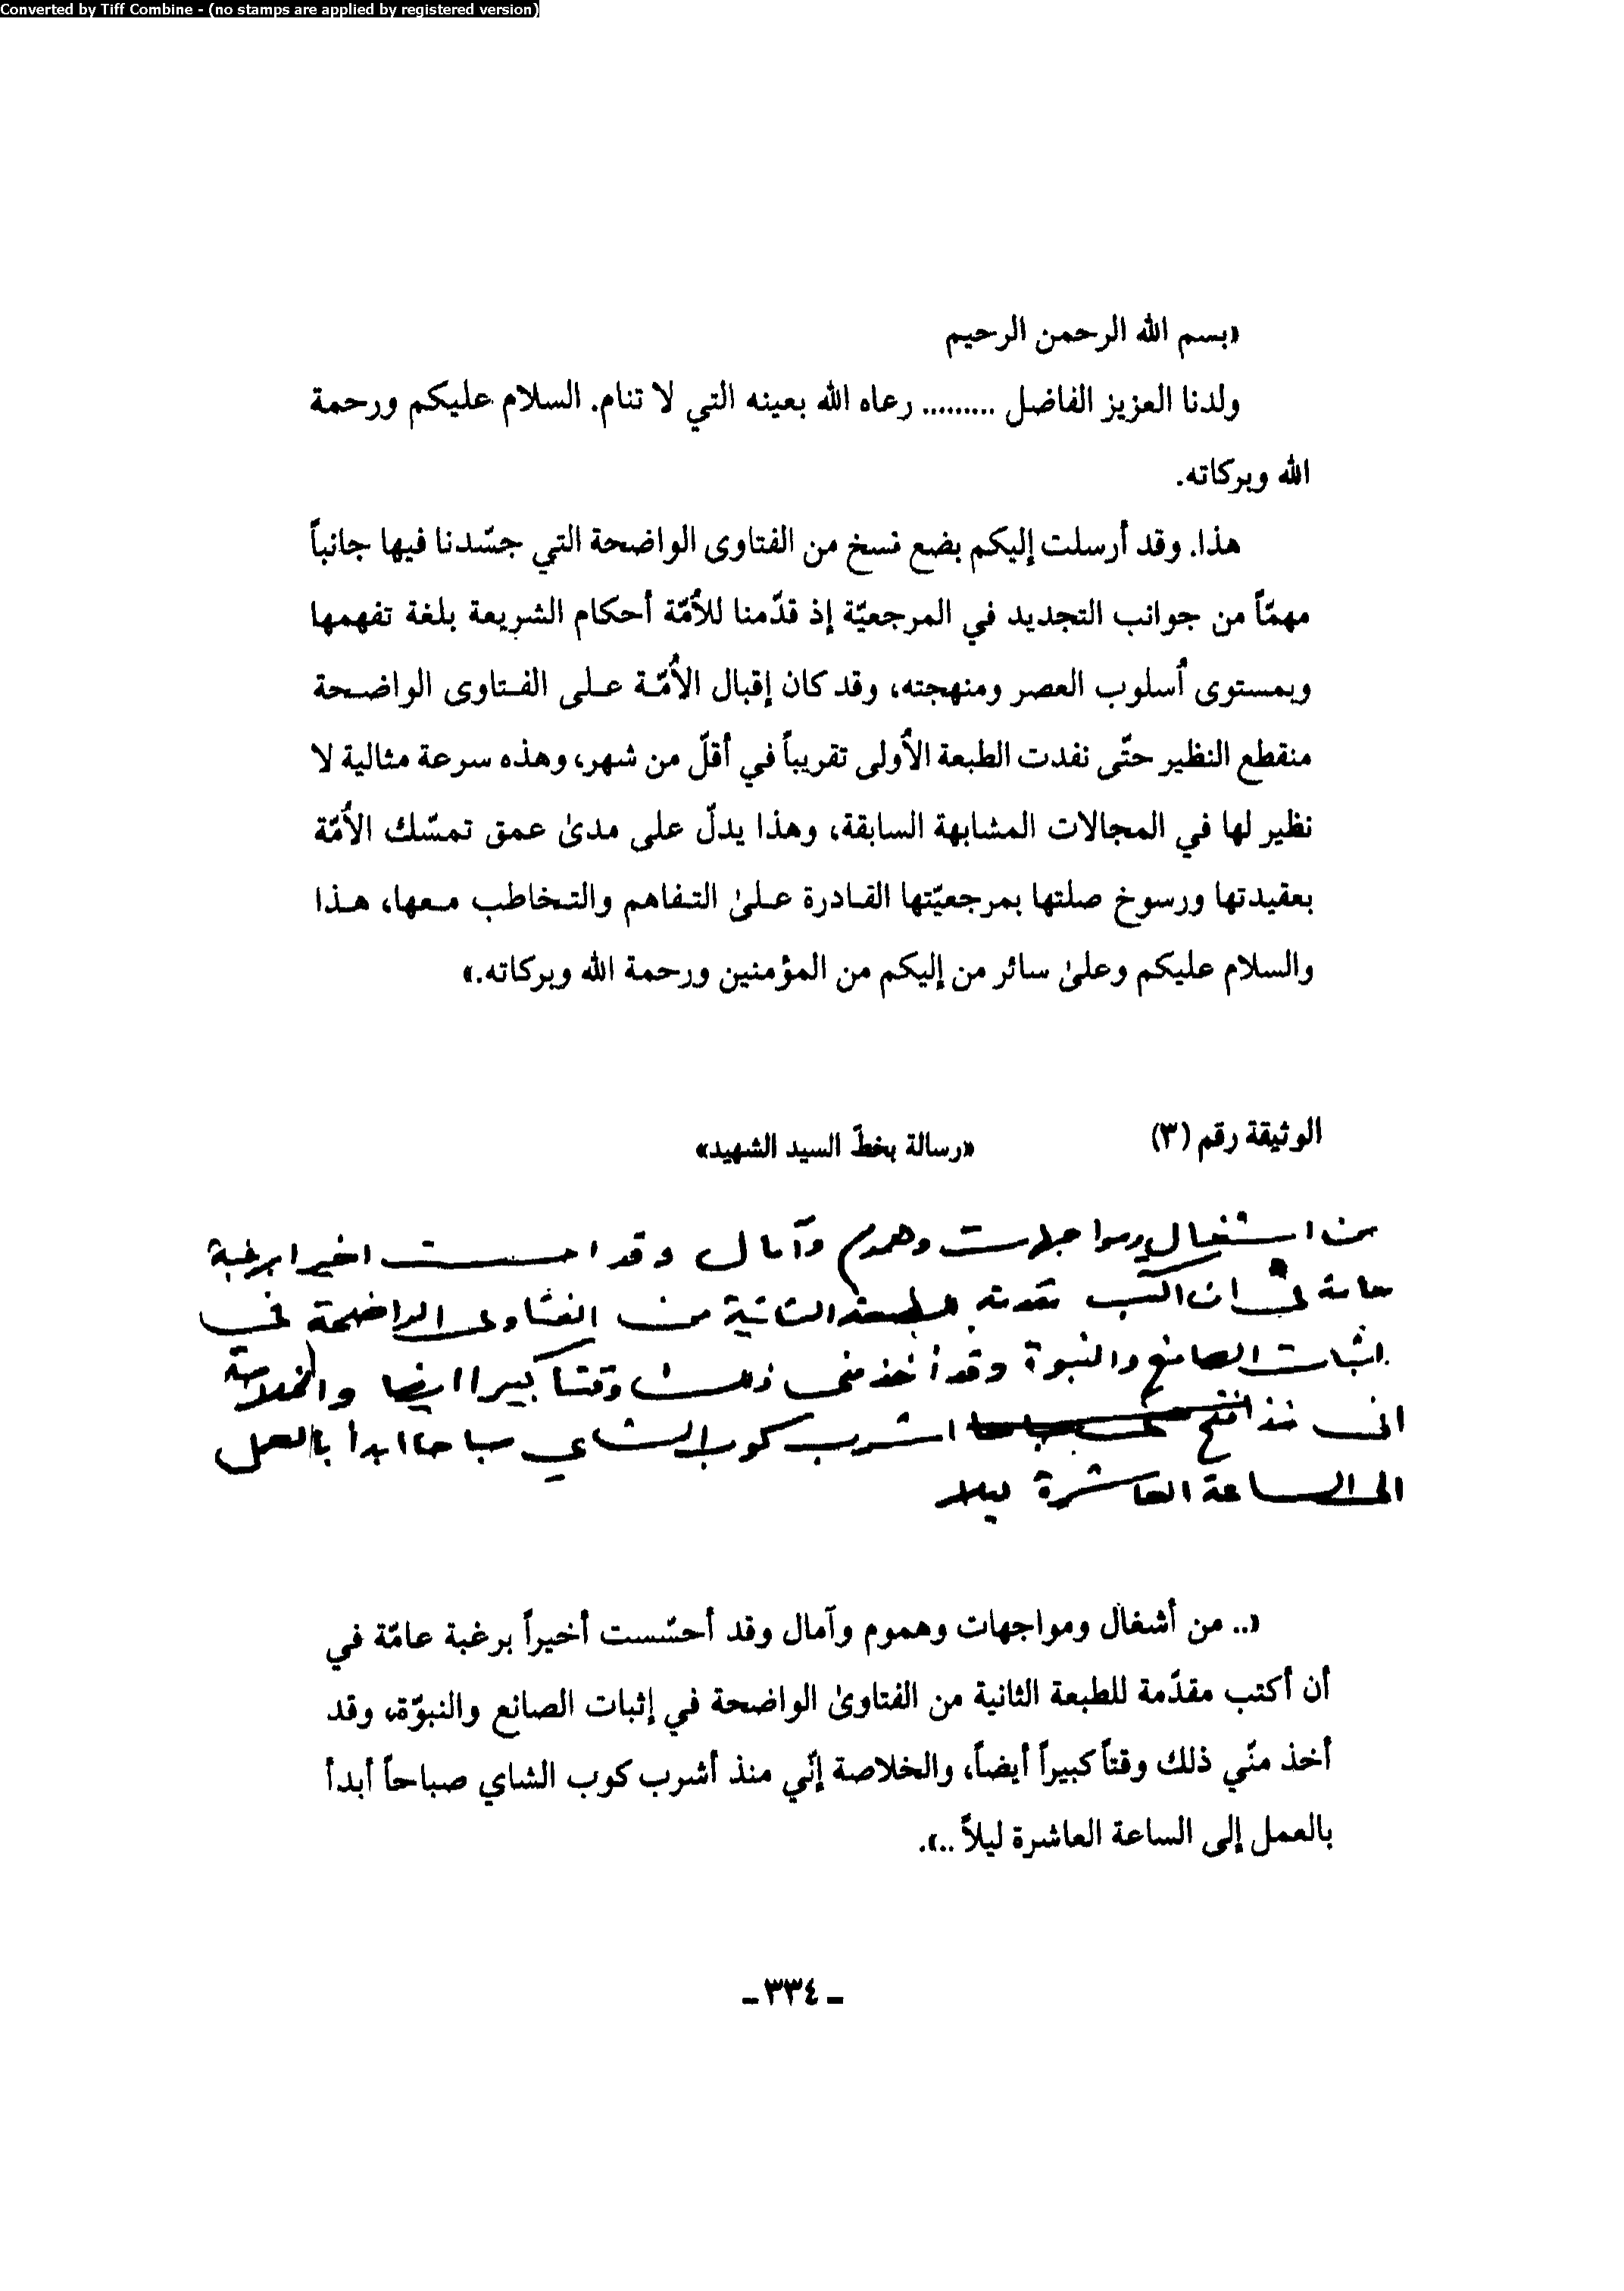 Converted by Tiff Combine - (no stamps are applied by registered version)
«بسم الله الرحمن الرحيم
ولدنا العزيز الفاضل ......... رعاه الله بعينه التي لا تنام. السلام عليكم ورحمة
الله وبركاته.
هذا. وقد أرسلت إليكم بضع نسخ من الفتاوى الواضحة التي جسّدنا فيها جانباً
مهمّاً من جوانب التجديد في المرجعيّة إذ قدّمنا للأُمّة أحكام الشريعة بلغة تفهمها
وبمستوى أُسلوب العصر ومنهجته، وقد كان إقبال الأُمّة على الفتاوى الواضحة
منقطع النظير حتّى نفدت الطبعة الأُولى تقريباً في أقلّ من شهر، وهذه سرعة مثالية لا
نظير لها في المجالات المشابهة السابقة، وهذا يدلّ على مدىٰ عمق تمسّك الأُمّة
بعقيدتها ورسوخ صلتها بمرجعيّتها القادرة علىٰ التفاهم والتخاطب معها، هذا
والسلام عليكم وعلىٰ سائر من إليكم من المؤمنين ورحمة الله وبركاته.»
الوثيقة رقم (٣) «رسالة بخطّ السيد الشهيد»
من اشغال ومواجهات وهموم وآمال وقد احسست اخيرا برغبة
عامة في ان اكتب مقدمة للطبعة الثانية من الفتاوى الواضحة في
اثبات الصانع والنبوة وقد أخذ مني ذلك وقتا كبيرا ايضا والخلاصة
اني منذ اشرب كوب الشاي صباحا ابدأ بالعمل
الى الساعة العاشرة ليلا
«.. من أشغال ومواجهات وهموم وآمال وقد أحسّست أخيراً برغبة عامّة في
أن أكتب مقدّمة للطبعة الثانية من الفتاوىٰ الواضحة في إثبات الصانع والنبوّة، وقد
أخذ منّي ذلك وقتاً كبيراً أيضاً، والخلاصة إنّي منذ أشرب كوب الشاي صباحاً أبدأ
بالعمل إلى الساعة العاشرة ليلاً ..».
ـ ٣٣٤ ـ